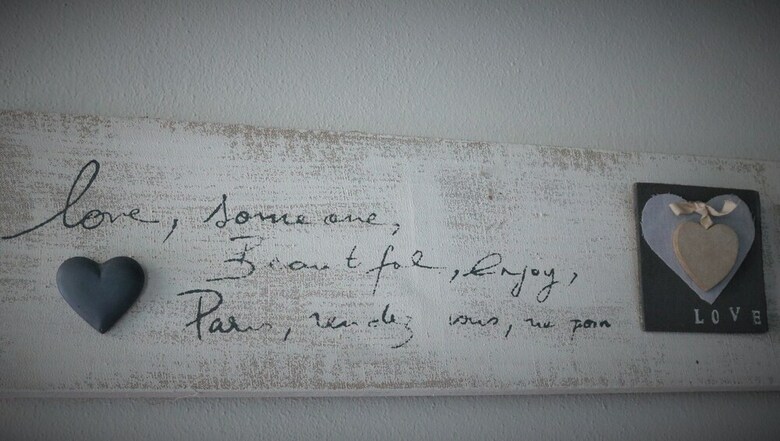 love, someone,
Beautiful, enjoy,
Paris, rendez vous, ne
LOVE